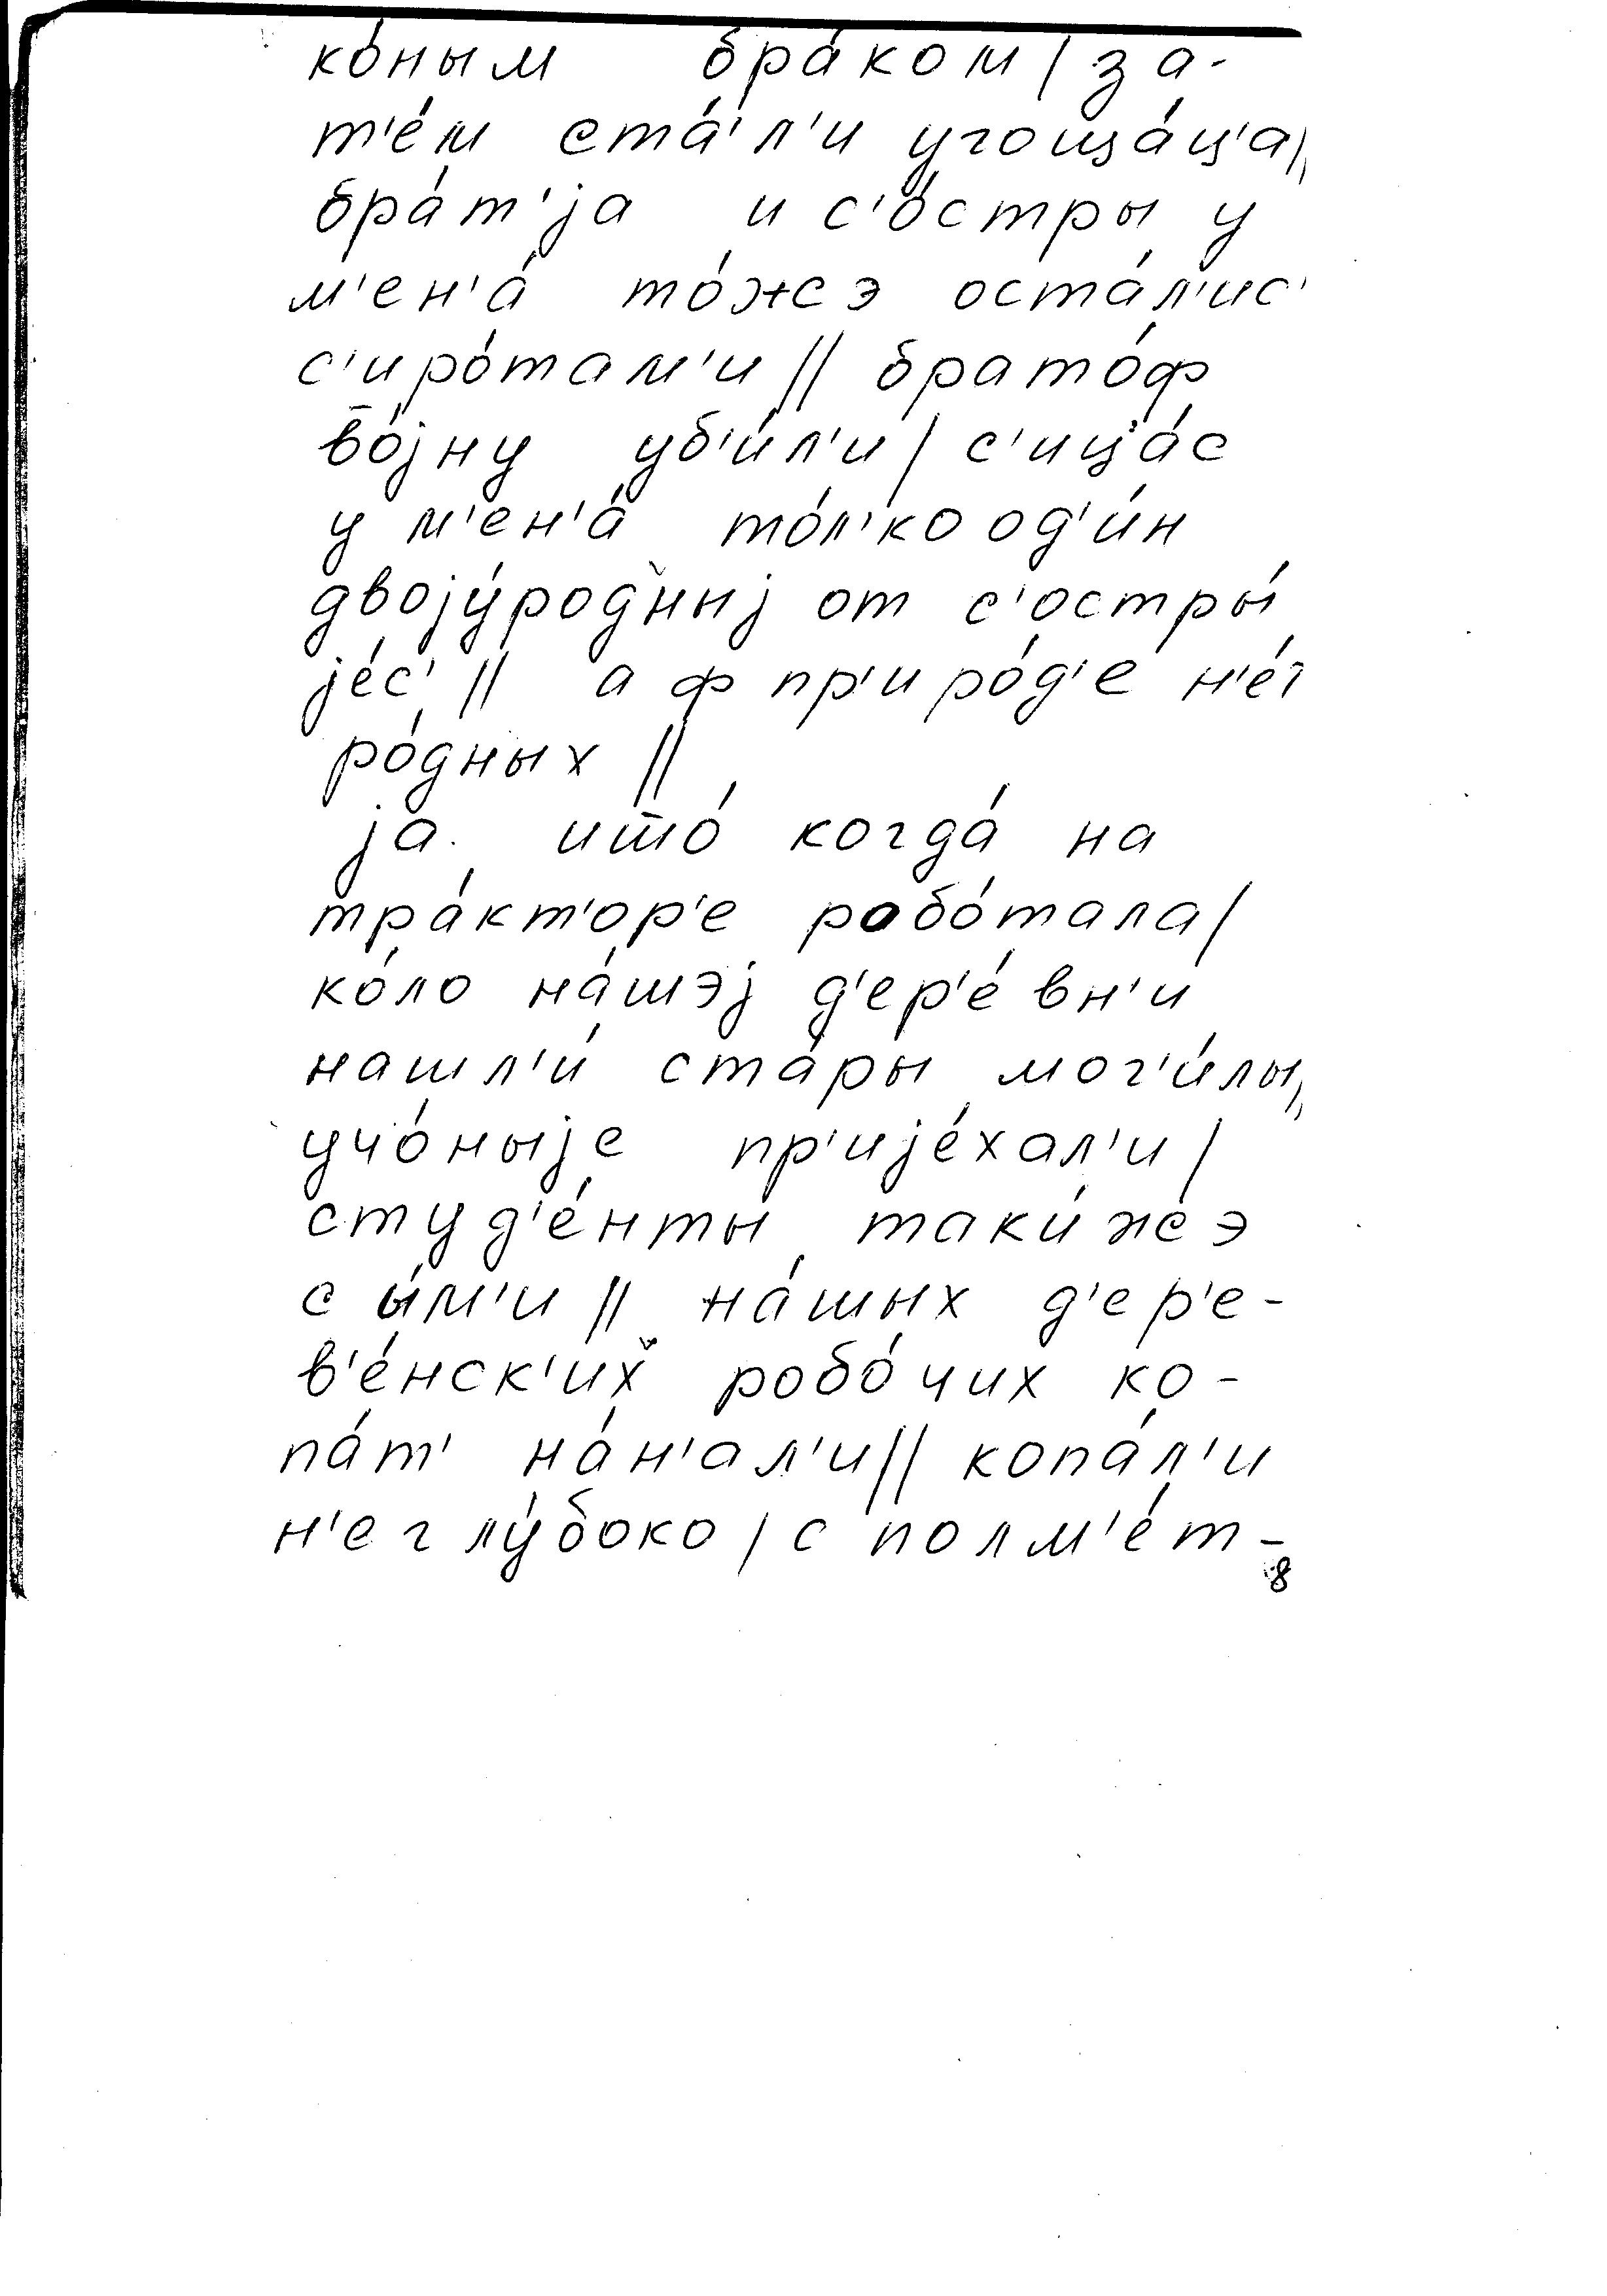 ко́ным бра́ком / за-
т'е́м ста́л'и угоща́ц'а //
бра́т'jа и с'о́стры у
м'ен'а́ то́жэ оста́л'ис'
с'иро́там'и // брато́ф
во́јну уб'и́л'и / с'ица́с
у м'ен'а́ то́л'ко од'и́н
двоју́родныј от с'остры́
јес'́ // а ф пр'иро́д'е н'е́т
ро́дных //
ја што́ когда́ на
тра́кт'ор'е робо́тала /
ко́ло на́шэј д'ер'е́вн'и
нашл'и́ ста́ры мог'и́лы //
учо́ныје пр'ије́хал'и /
студ'е́нты таки́жэ
с ы́м'и // на́шых д'ер'е-
в'е́нск'их робо́чих ко-
па́т' на́н'ал'и // копа́л'и
н'еглу́боко / с полм'е́т-
8